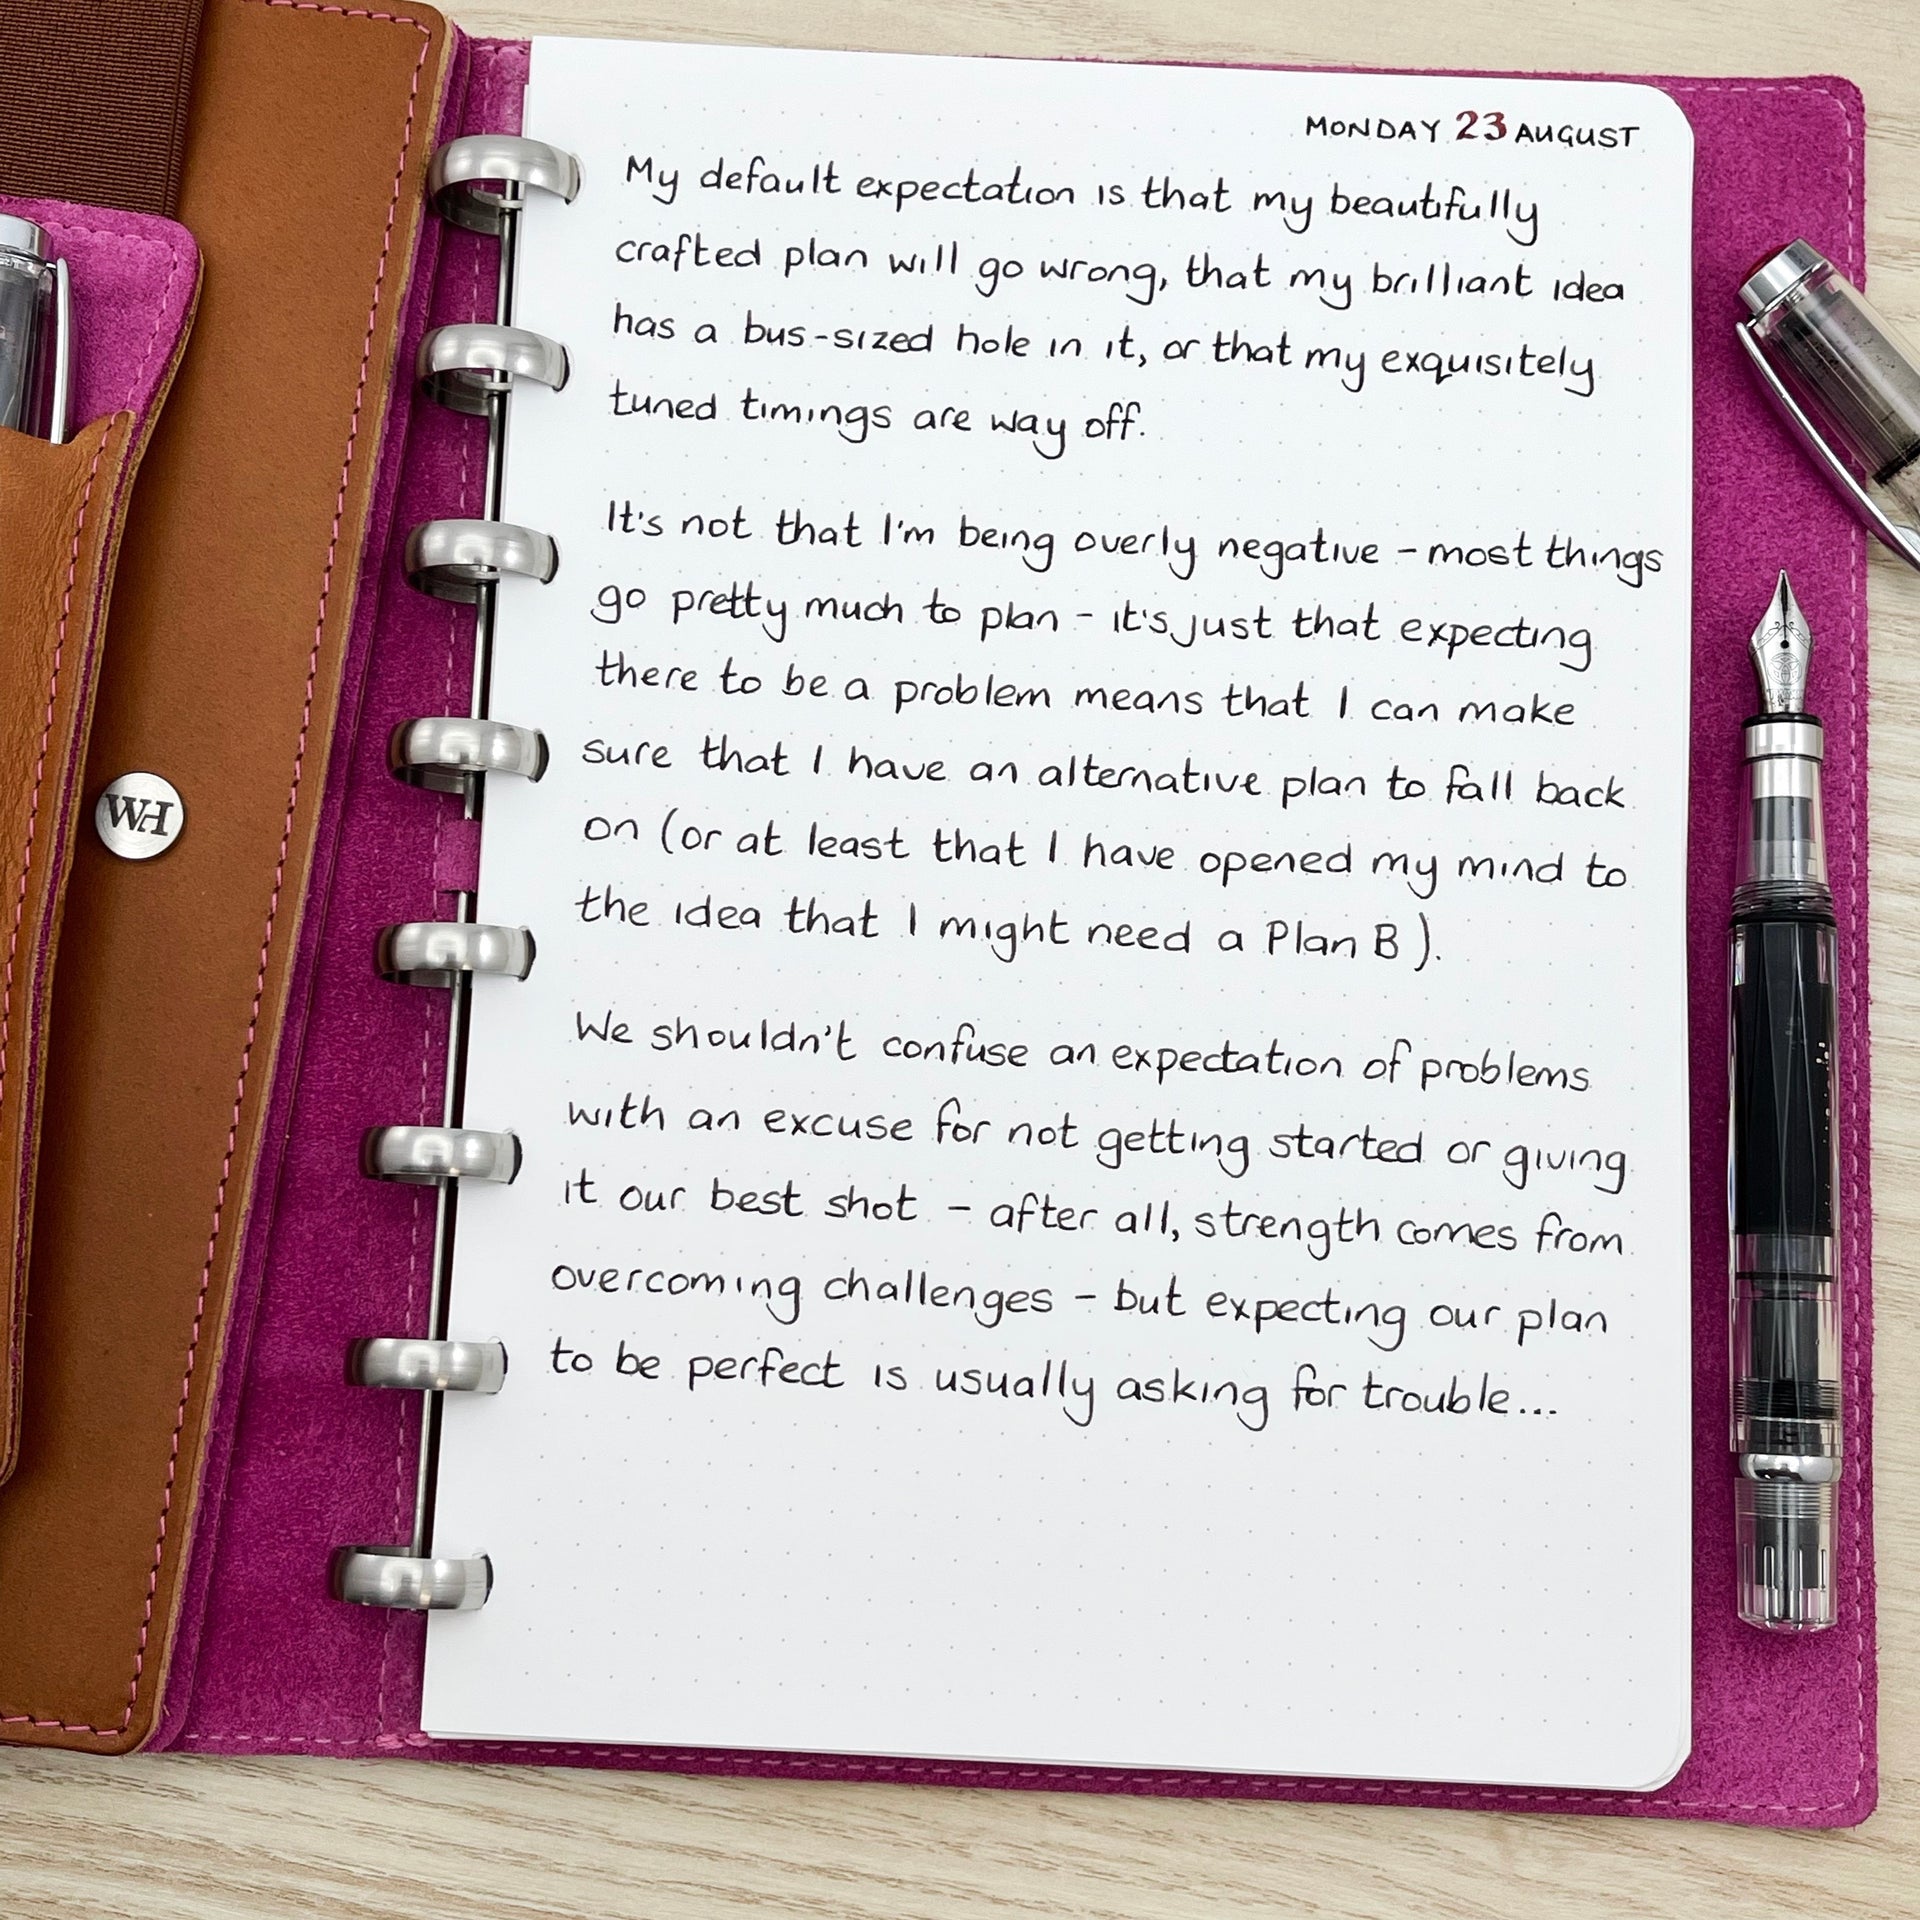 MONDAY 23 AUGUST
My default expectation is that my beautifully
crafted plan will go wrong, that my brilliant idea
has a bus-sized hole in it, or that my exquisitely
tuned timings are way off.
It's not that I'm being overly negative - most things
go pretty much to plan - it's just that expecting
there to be a problem means that I can make
sure that I have an alternative plan to fall back
on (or at least that I have opened my mind to
the idea that I might need a Plan B).
We shouldn't confuse an expectation of problems
with an excuse for not getting started or giving
it our best shot - after all, strength comes from
overcoming challenges - but expecting our plan
to be perfect is usually asking for trouble...
WH